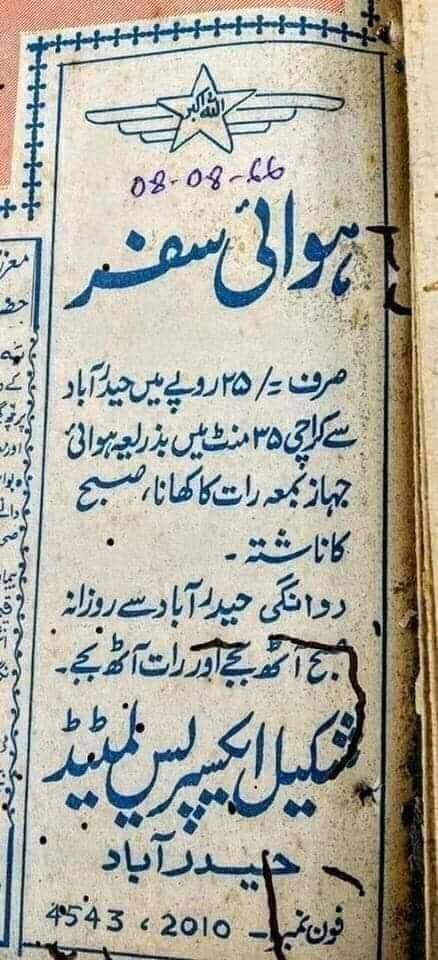 اللہ اکبر
08-08-66
ہوائی سفر
صرف =/۲۵ روپے میں حیدرآباد
سے کراچی ۳۵ منٹ میں بذریعہ ہوائی
جہاز بمعہ رات کا کھانا، صبح
کا ناشتہ۔
روانگی حیدرآباد سے روزانہ
صبح آٹھ بجے اور رات آٹھ بجے۔
شکیل ایکسپریس لمیٹڈ
حیدرآباد
فون نمبر۔ 2010 ، 4543